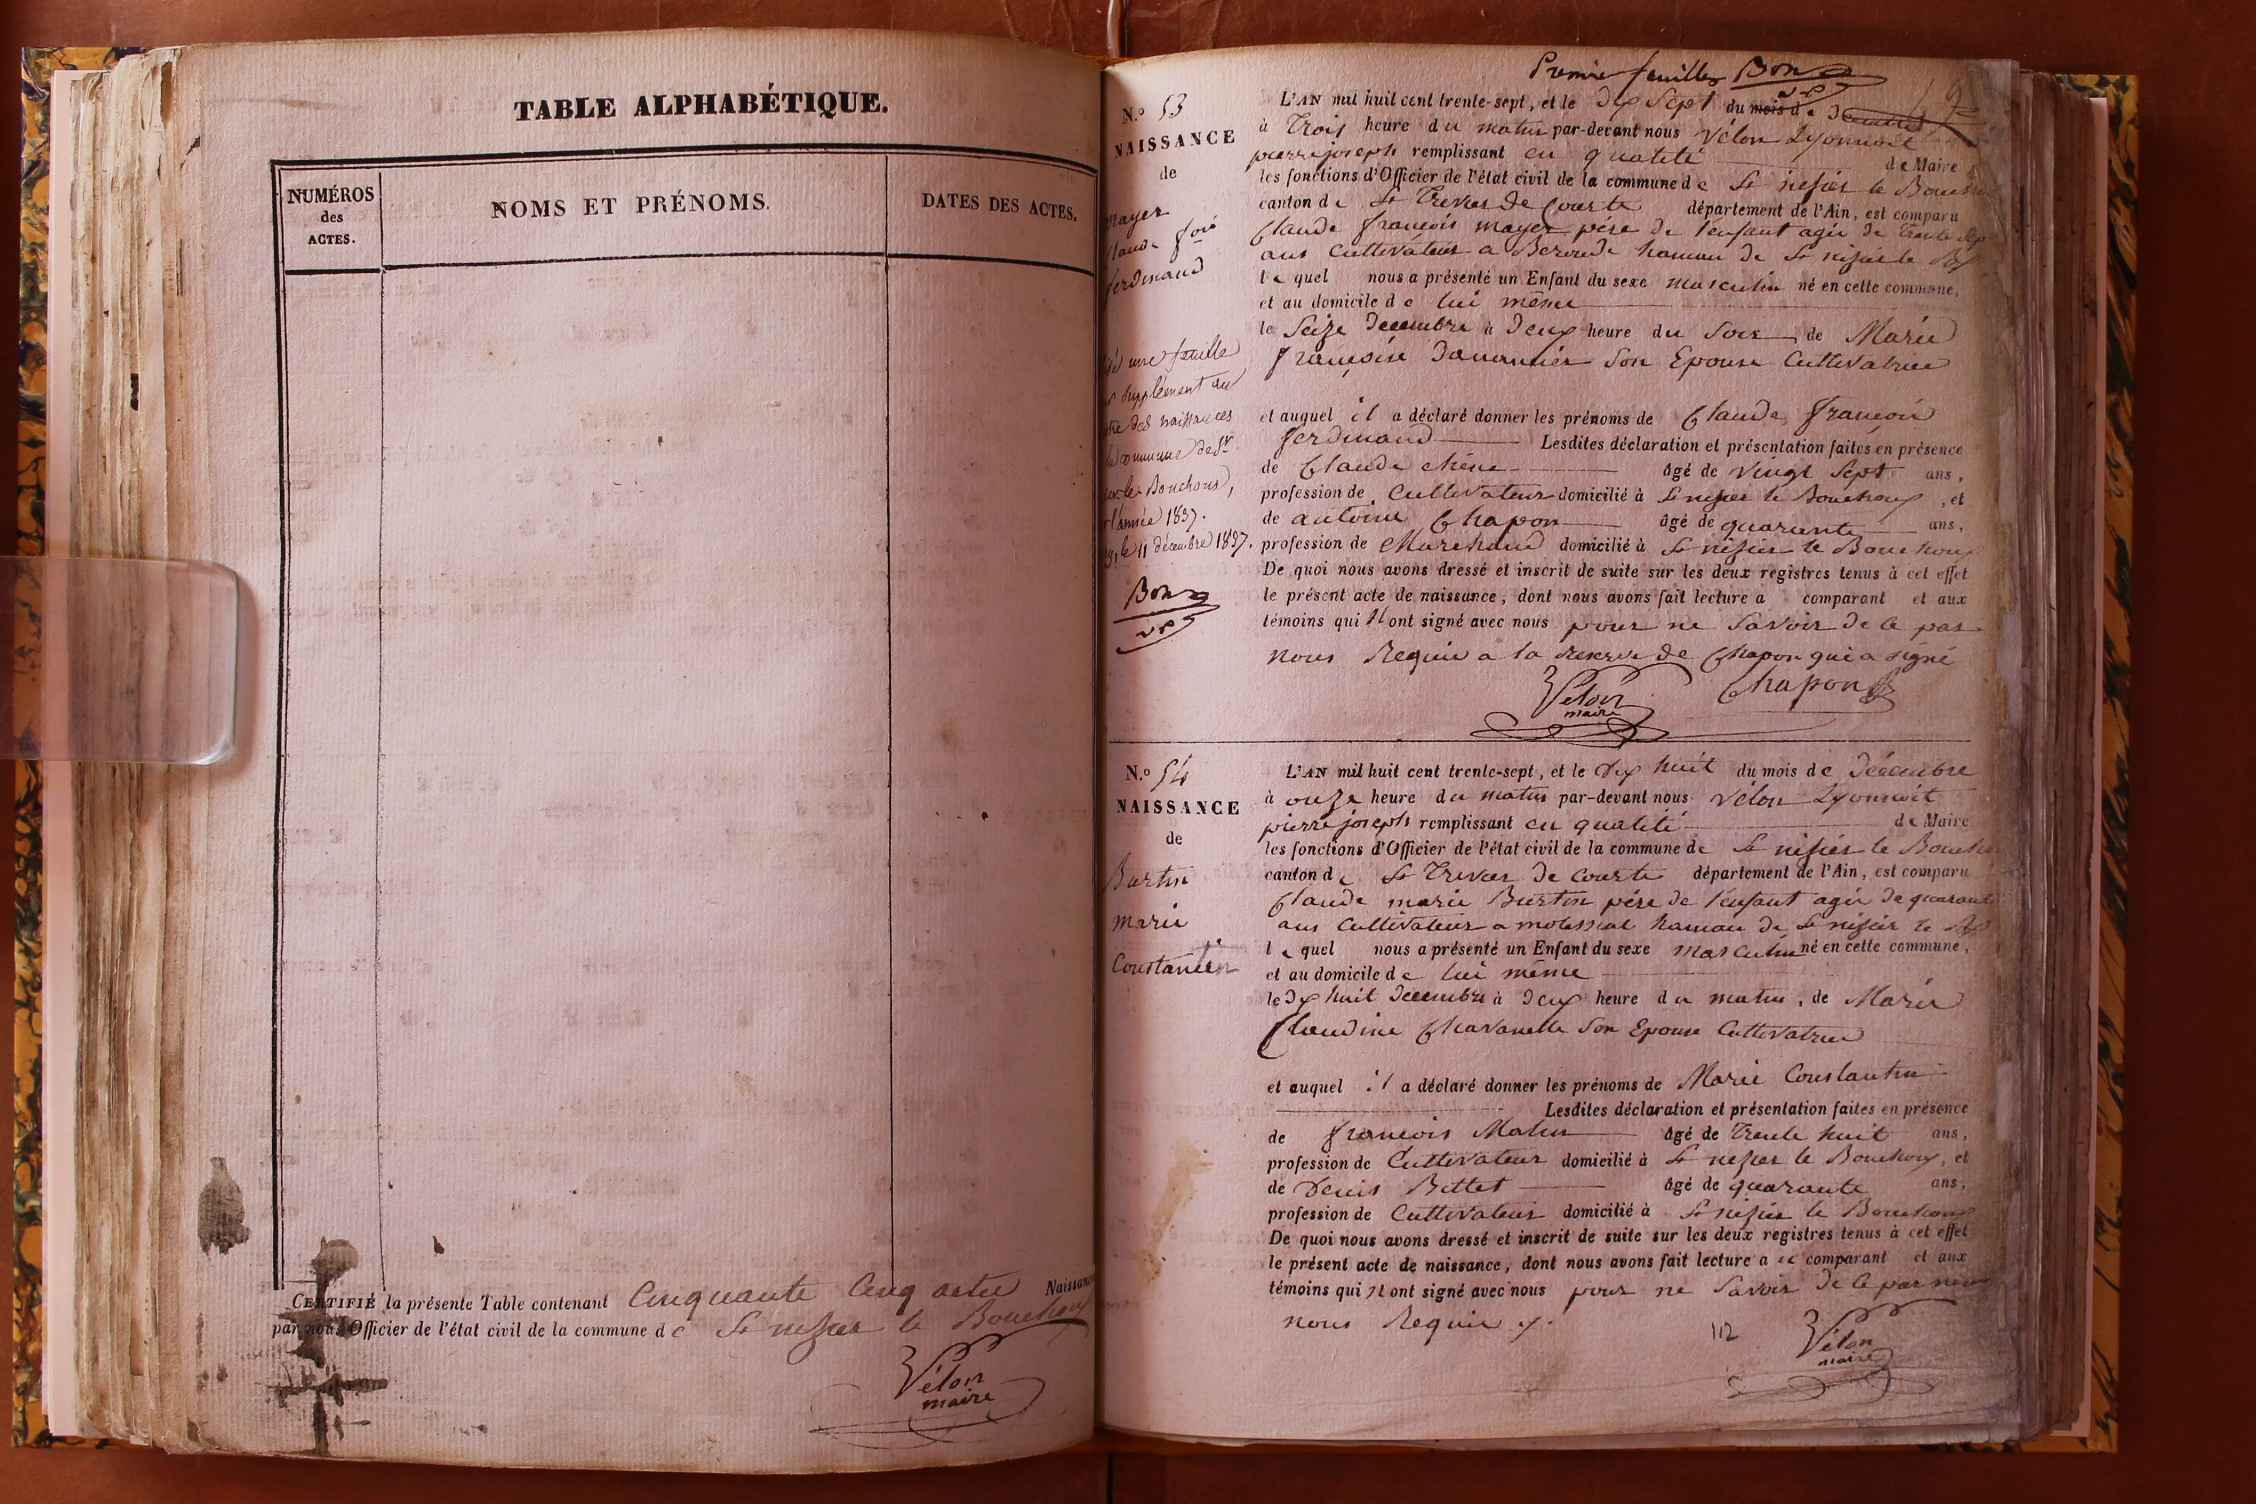 TABLE ALPHABÉTIQUE.
NUMÉROS
des
ACTES.
NOMS ET PRÉNOMS.
DATES DES ACTES.
CERTIFIÉ la présente Table contenant Cinquante Cinq actes Naissance
par nous Officier de l'état civil de la commune de St nizier le Bouchoux
Vélon
maire
Premier feuillet Bon
N.º 53
NAISSANCE
de
mayer
Claude fois
ferdinand
une feuille
supplément au
des naissances
commune de St
le Bouchoux,
l'année 1837.
le 11 décembre 1837.
Bon
L'AN mil huit cent trente-sept, et le dix Sept du mois de
à Trois heure du matin par-devant nous Vélon Lyonnoit
pierre joseph remplissant en qualité de Maire
les fonctions d'Officier de l'état civil de la commune de St nizier le Bouchoux
canton de St Trivier de Courte département de l'Ain, est comparu
Claude françois mayer père de l'enfant agée de Trente
ans Cultivateur a hameau de St nizier le
le quel nous a présenté un Enfant du sexe masculin né en cette commune,
et au domicile de lui même
le Seize décembre à deux heure du soir de Marie
françoise son Epouse Cultivatrice
et auquel il a déclaré donner les prénoms de Claude françois
ferdinand Lesdites déclaration et présentation faites en présence
de Claude chêne âgé de vingt Sept ans,
profession de Cultivateur domicilié à St nizier le Bouchoux, et
de antoine Chapon âgé de quarante ans,
profession de Marchand domicilié à St nizier le Bouchoux
De quoi nous avons dressé et inscrit de suite sur les deux registres tenus à cet effet
le présent acte de naissance, dont nous avons fait lecture a comparant et aux
témoins qui n ont signé avec nous pour ne Savoir de ce par
nous Requis a la reserve de Chapon qui a signé
Vélon
maire
Chapon
N.º 54
NAISSANCE
de
Burtin
marie
Constantin
L'AN mil huit cent trente-sept, et le dix huit du mois de décembre
à onze heure du matin par-devant nous Vélon Lyonnoit
pierre joseph remplissant en qualité de Maire
les fonctions d'Officier de l'état civil de la commune de St nizier le Bouchoux
canton de St Trivier de Courte département de l'Ain, est comparu
Claude marie Burtin père de l'enfant agée de quarante
ans Cultivateur a hameau de St nizier le
le quel nous a présenté un Enfant du sexe masculin né en cette commune,
et au domicile de lui même
le dix huit décembre à deux heure du matin, de Marie
Claudine Chavanelle son Epouse Cultivatrice
et auquel il a déclaré donner les prénoms de Marie Constantin
Lesdites déclaration et présentation faites en présence
de françois âgé de Trente huit ans,
profession de Cultivateur domicilié à St nizier le Bouchoux, et
de Denis Bettet âgé de quarante ans,
profession de Cultivateur domicilié à St nizier le Bouchoux
De quoi nous avons dressé et inscrit de suite sur les deux registres tenus à cet effet
le présent acte de naissance, dont nous avons fait lecture a comparant et aux
témoins qui n ont signé avec nous pour ne Savoir de ce par nous
nous Requis
112
Vélon
maire